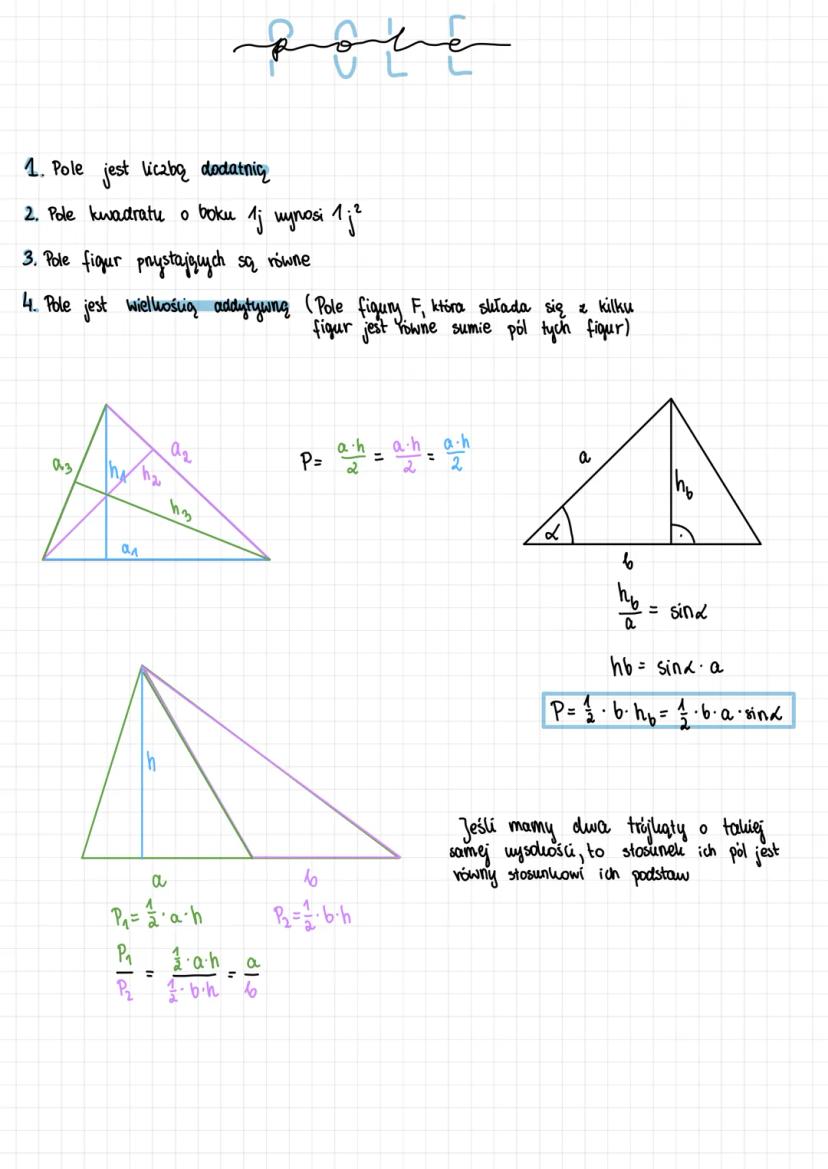 POLE
pole
1. Pole jest liczbą dodatnią
2. Pole kwadratu o boku 1j wynosi 1j²
3. Pole figur przystających są równe
4. Pole jest wielkością addytywną (Pole figury F, która składa się z kilku
figur jest równe sumie pól tych figur)
a₃
h₁
h₂
a₂
h₃
a₁
P = a·h/2 = a·h/2 = a·h/2
a
h_b
α
b
h_b/a = sinα
hb = sinα · a
P = 1/2 · b · h_b = 1/2 · b · a · sinα
h
a
b
P₁ = 1/2 · a · h
P₂ = 1/2 · b · h
P₁/P₂ = 1/2 · a · h / 1/2 · b · h = a/b
Jeśli mamy dwa trójkąty o takiej
samej wysokości, to stosunek ich pól jest
równy stosunkowi ich podstaw